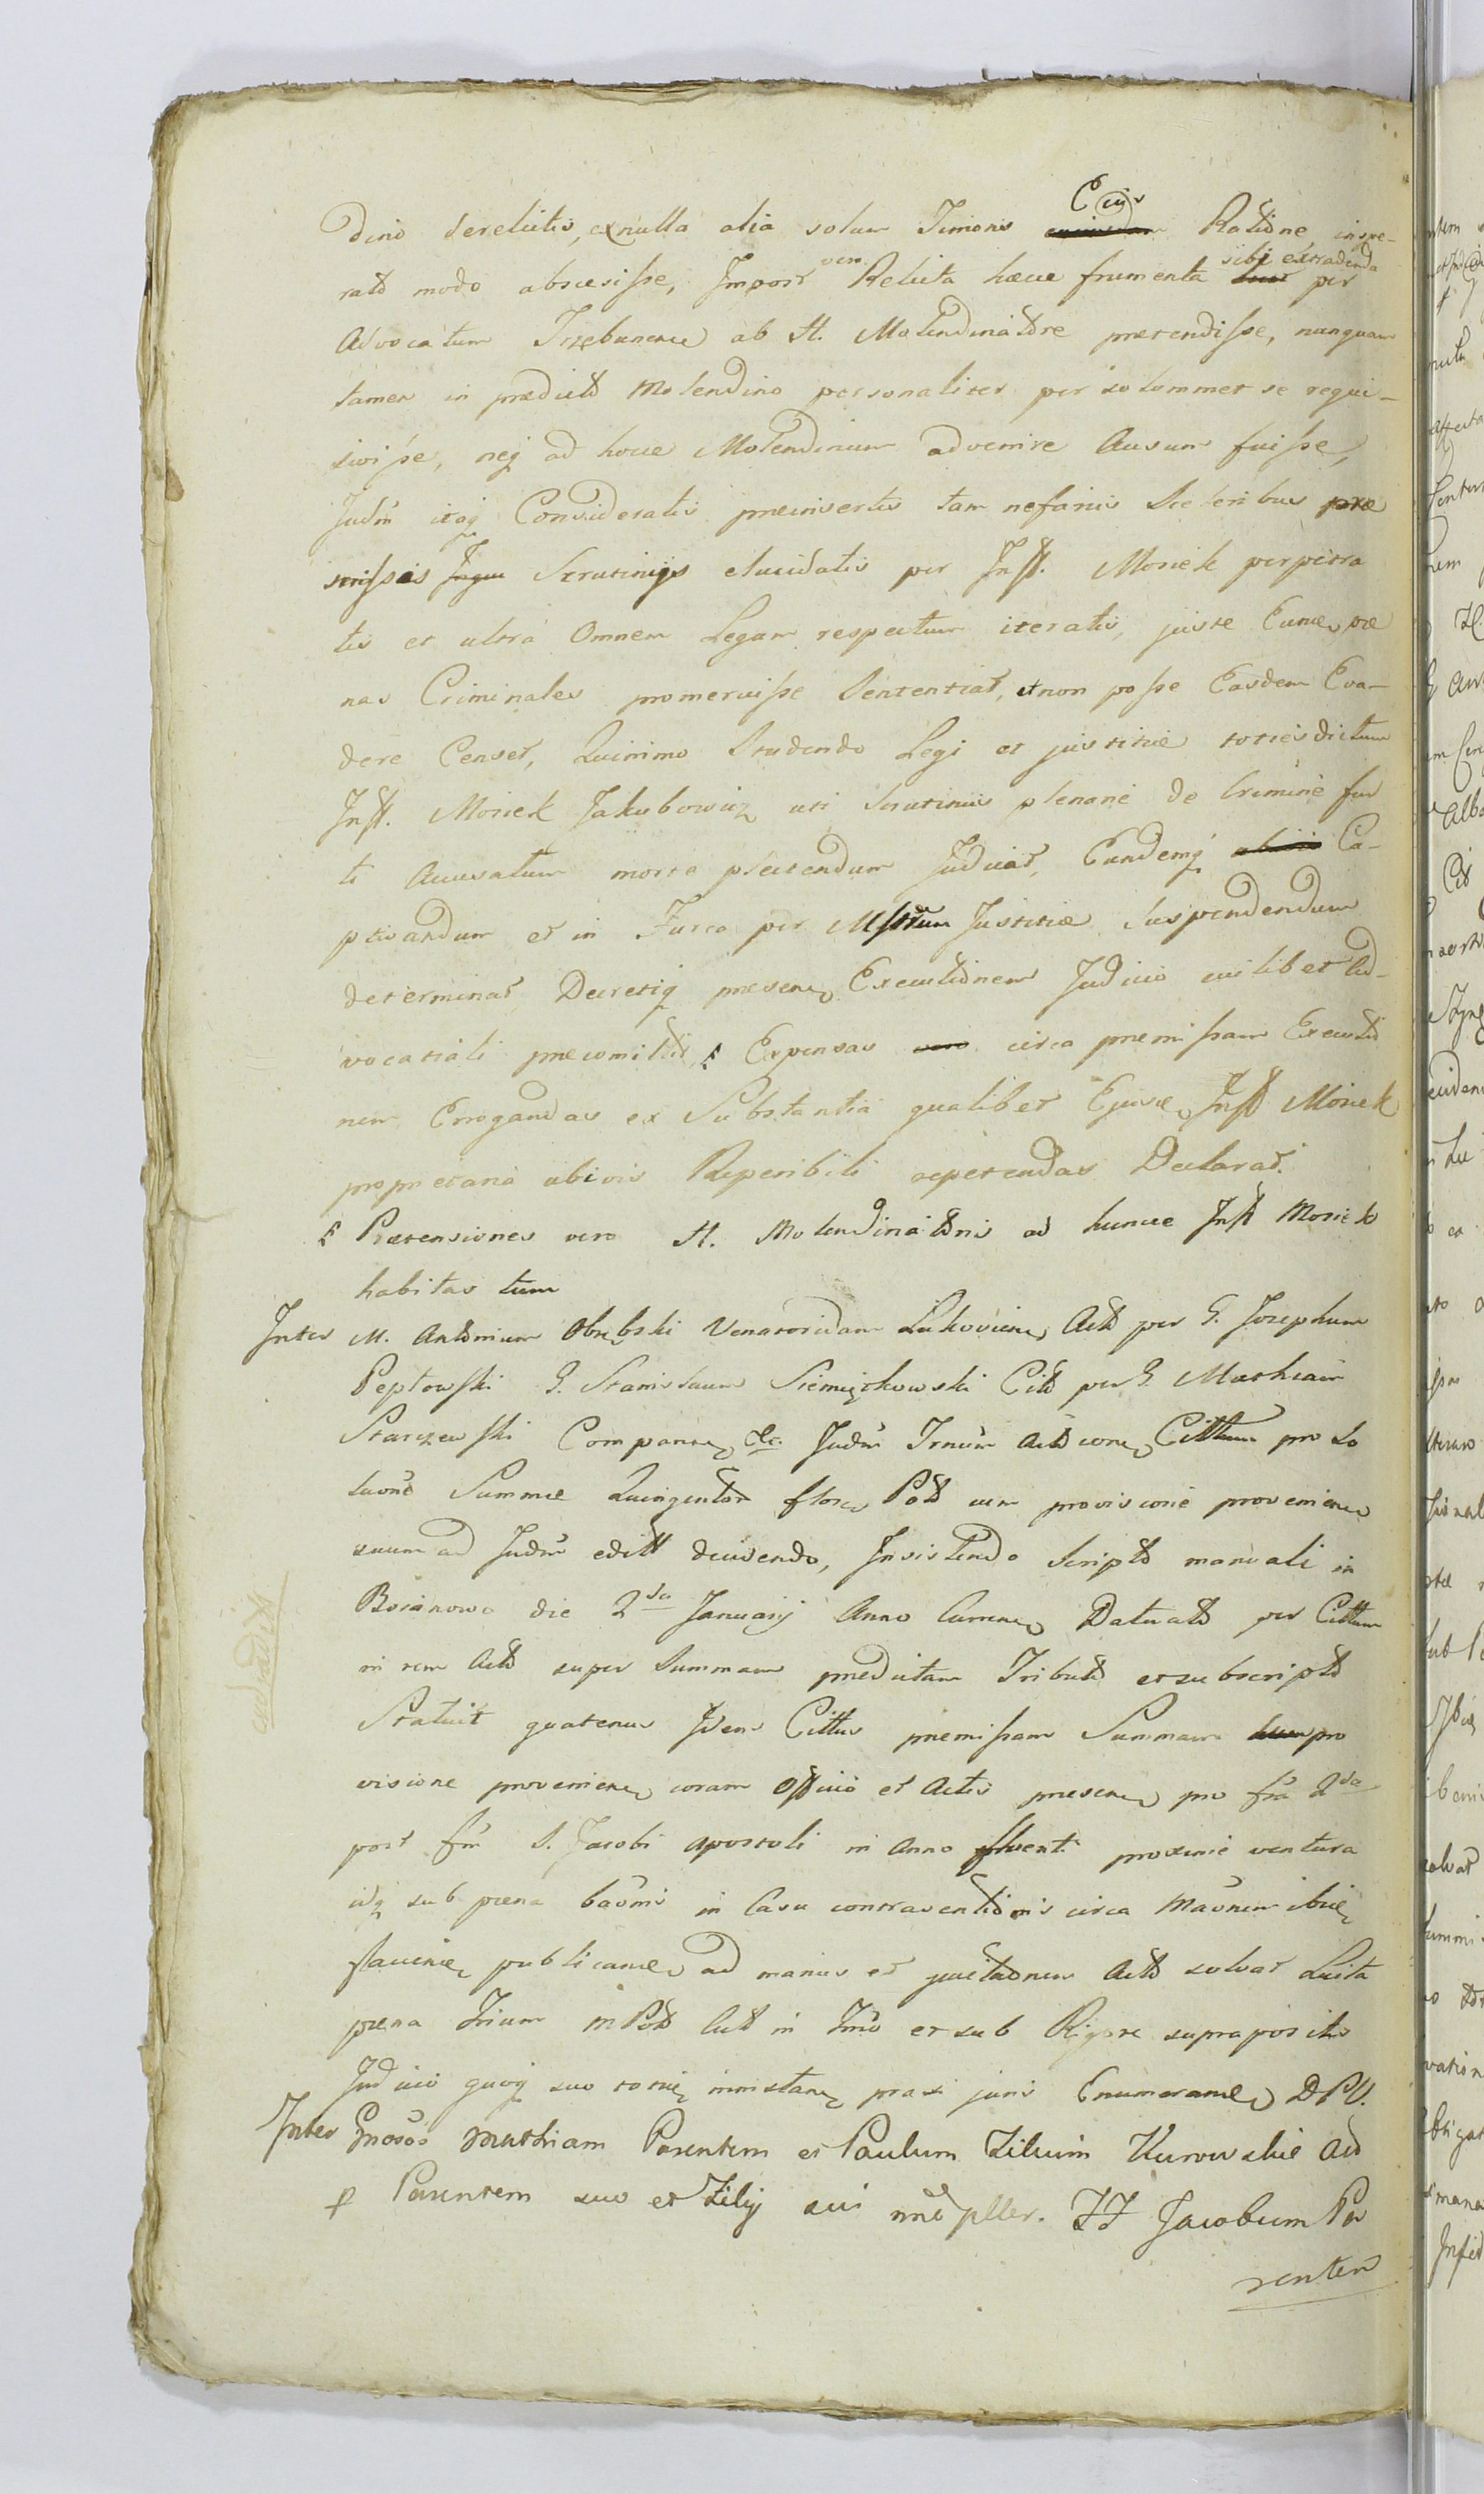 dino derelictis, ex nulla alia solum Timoris Cuius Ratione, inspe-
rato modo abscessisse, Impost vero Relicta hæcce frumenta sibi extradenda per
Advocatum Trzebunene ab H. Molendinatore prætendisse, nunquam
tamen in prædicto Molendino personaliter per solummet se requi-
sivisse, neq ad hocce Molendinum advenire Ausum fuisse,
Judm itaq Consideratis præinsertis tam nefariis Sceleribus præ
scrissis Scrutinijs elucidatis per Inft. Mosiek perpetra
tis et ultra Omnem Legam respectum iteratis, juste Eunce, pæ
nas Criminales promeruisse Sententiat, et non posse Easdem Eva-
dere Censet, Quinimo Studendo Legi et justitiæ totiesdictum
Inft. Mosiek Jakubowicz uti Scrutiniis plenarie de Crimine fur
ti Accusatum morte plectendum Judicat, Eundemq Ca-
ptivandum et in Furca per Mstrum Justitiæ Suspendendum
determinat, Decretiq presene Executionem Judicio cuilibet Ad-
vocatiali præcomittit, Expensas circa præmissam Executio
nem Erogandas ex Substantia qualibet Ejusce Inft Mosiek
proprietaria ubivis Reperibili repetendas Declarat.
Prætensiones vero H. Molendinatoris ad huncce Inft Mosiek
habitas tum
Inter M. Antonium Obrębski Venatoridam Lukovien Acto per G. Josephum
Peptowski G. Stanislaum Siemiątkowski Cito per G. Mathiam
Starczewski Comparne &c. Judm Trnum Actcone Cittum pro so
luone Summæ Quingentor flor Pol cum provisione provenien
suum ad Judm editt decidendo, Insistendo Scripto manuali in
Bosanowo die 2da Januarij Anno Currne Datuato per Cittum
in rem Acto super Summam prædictam Tributo et subscripto
Statuit quatenus Idem Cittus præmissam Summam pro
visione provenien coram Officio et Actis presene pro fria 2da
post fm S. Jacobi Apostoli in Anno fluenti proxime ventura
idq sub pæna baonis in Casu contraventionis circa
publicane ad manus et quietaonem Acto solvat Luita
pæna Trium M Pol Cuto in Trno et sub Rigore supraposito
Judicio quoq suo innstane praxi juris Enumerane DPV.
Inter Gnosos Mathiam Parentem et Paulum Filium Kurowskie Act
Parentem suo et Filij sui nne pller. FF Jacobum Pa
rentem